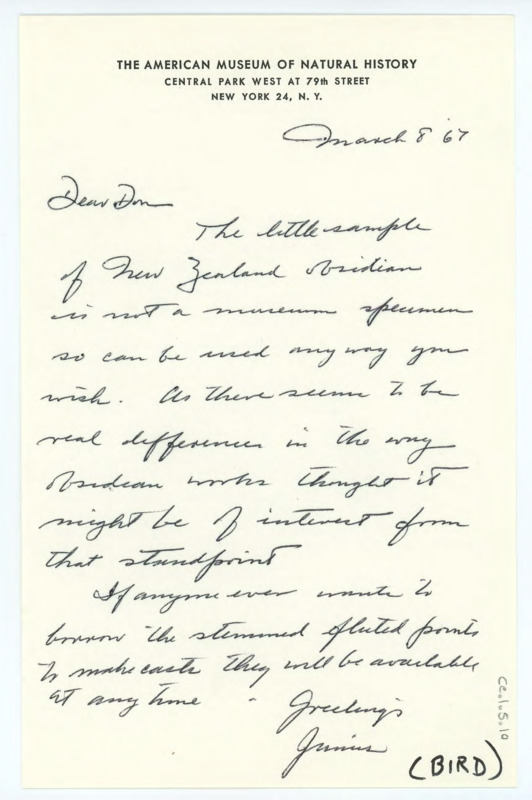 THE AMERICAN MUSEUM OF NATURAL HISTORY
CENTRAL PARK WEST AT 79th STREET
NEW YORK 24, N. Y.
March 8 '67
Dear Don
The little sample
of New Zealand obsidian
is not a museum specimen
so can be used any way you
wish. As there seems to be
real differences in the way
obsidian works thought it
might be of interest from
that standpoint
If anyone ever wants to
borrow the stemmed fluted points
to make casts they will be available
at any time -
Greetings
Junius
(BIRD)
CC.1.5.10